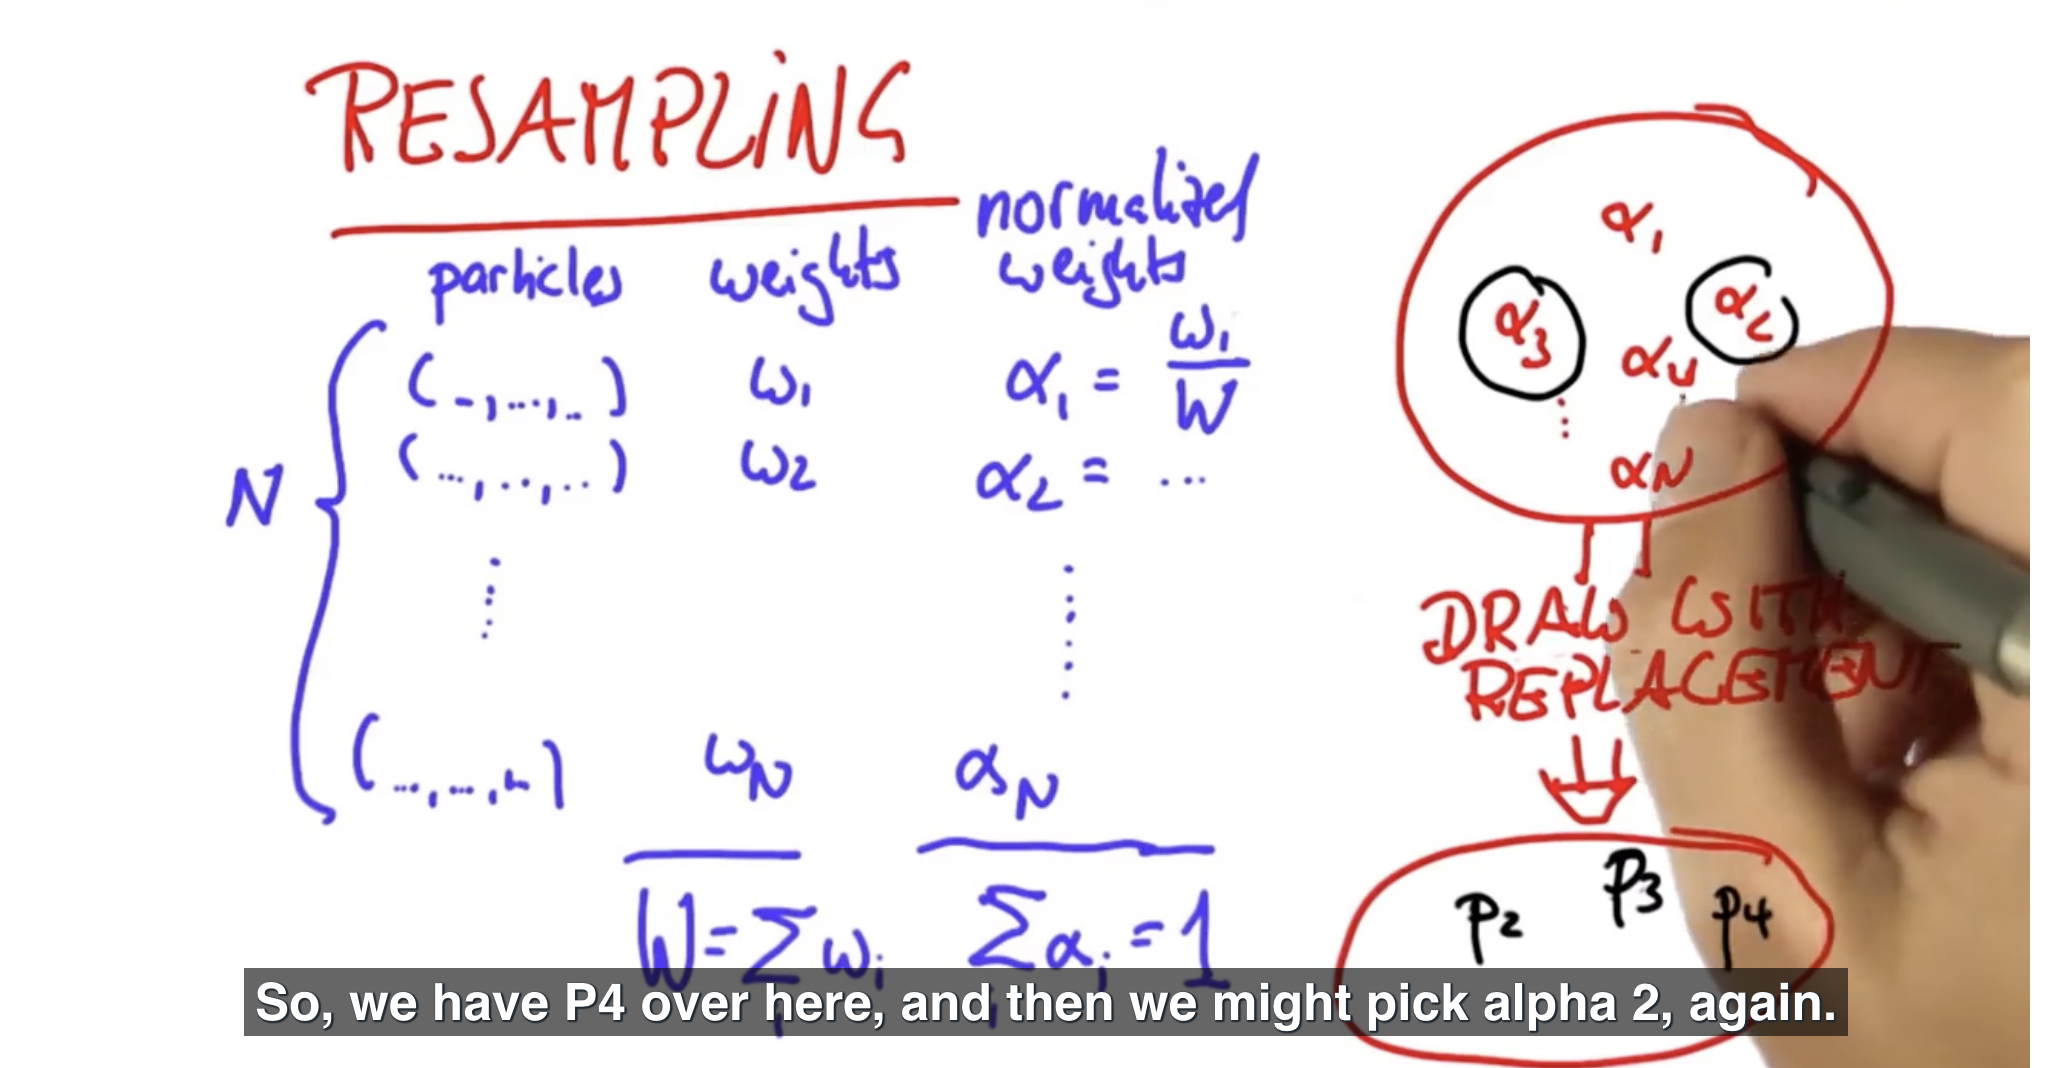 RESAMPLING
particles weights normalized weights
N
(-,...,..) ω₁ α₁ = ω₁/W
(...,..,..) ω₂ α₂ = ...
(...,...,..) ω_N α_N
W = Σ_i ω_i Σ_i α_i = 1
α₁
α₃ α₂
α₄
α_N
DRAW WITH
REPLACEMENT
p₂ p₃ p₄
So, we have P4 over here, and then we might pick alpha 2, again.